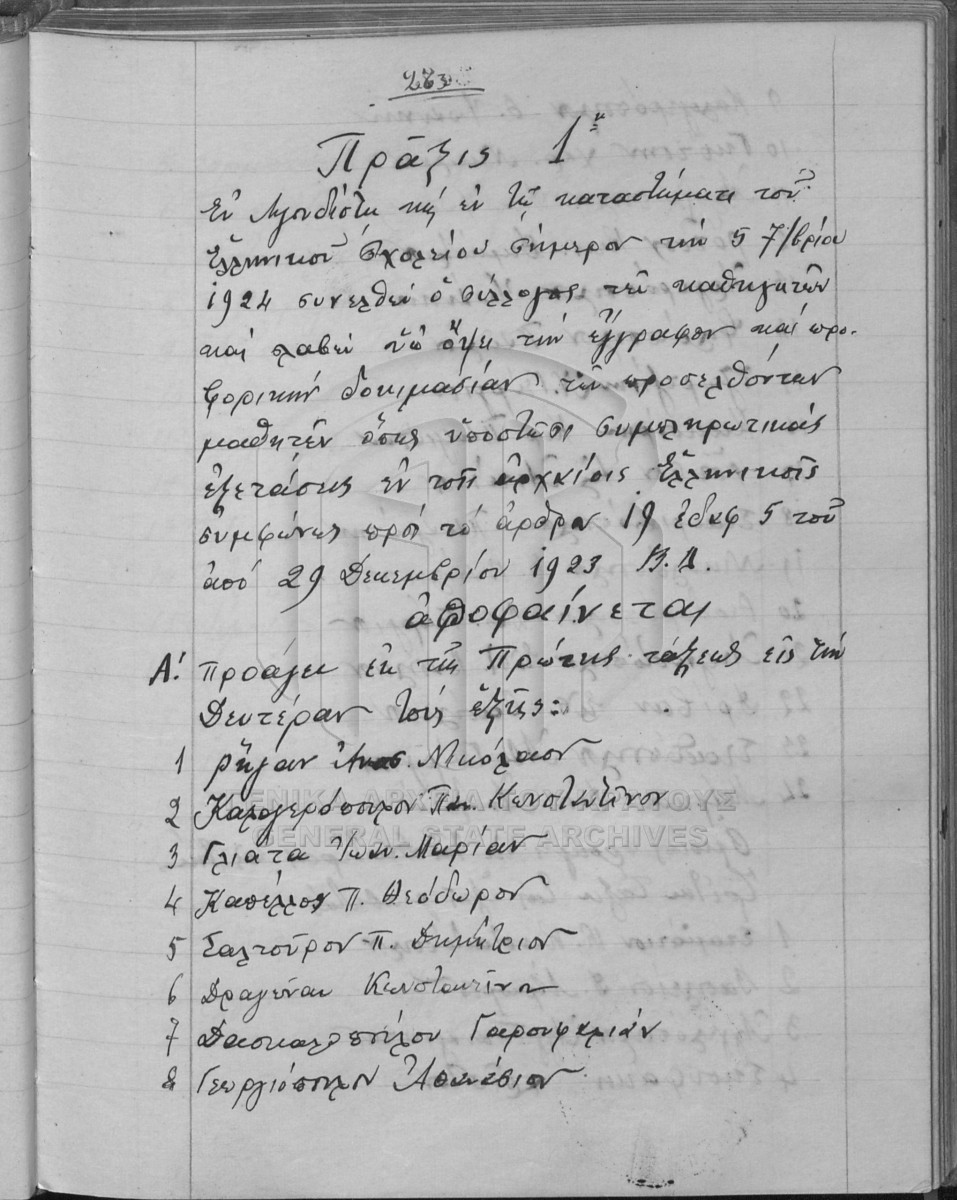 Πρᾶξις 1η
Ἐν Λιγουδίστῃ καὶ ἐν τῷ καταστήματι τοῦ
Ἑλληνικοῦ Σχολείου σήμερον τὴν 5 7/βρίου
1924 συνελθὼν ὁ σύλλογος τῶν καθηγητῶν
καὶ λαβὼν ὑπ' ὄψει τὴν ἔγγραφον καὶ προ-
φορικὴν δοκιμασίαν τῶν προσελθόντων
μαθητῶν ὅπως ὑποστῶσι συμπληρωτικὰς
ἐξετάσεις ἐν τοῖς ἀρχαίοις Ἑλληνικοῖς
συμφώνως πρὸς τὸ ἄρθρον 19 ἐδαφ 5 τοῦ
ἀπὸ 29 Δεκεμβρίου 1923 Β.Δ.
ἀποφαίνεται
Α! προάγει ἐκ τῆς Πρώτης τάξεως εἰς τὴν
Δευτέραν τοὺς ἑξῆς:
1 Ρήγαν Ἀνασ. Νικόλαον
2 Καλογερόπουλον Παν. Κωνσταντῖνον
3 Γλιάτα Ἰωαν. Μαρίαν
4 Καπέλλον Π. Θεόδωρον
5 Σαλτοῦρον Π. Δημήτριον
6 Δραγώναν Κωνσταντῖνον
7 Δασκαλοπούλου Γαρουφαλιάν
8 Γεωργιόπουλον Ἀθανάσιον
ΓΕΝΙΚΑ ΑΡΧΕΙΑ ΤΟΥ ΚΡΑΤΟΥΣ
GENERAL STATE ARCHIVES